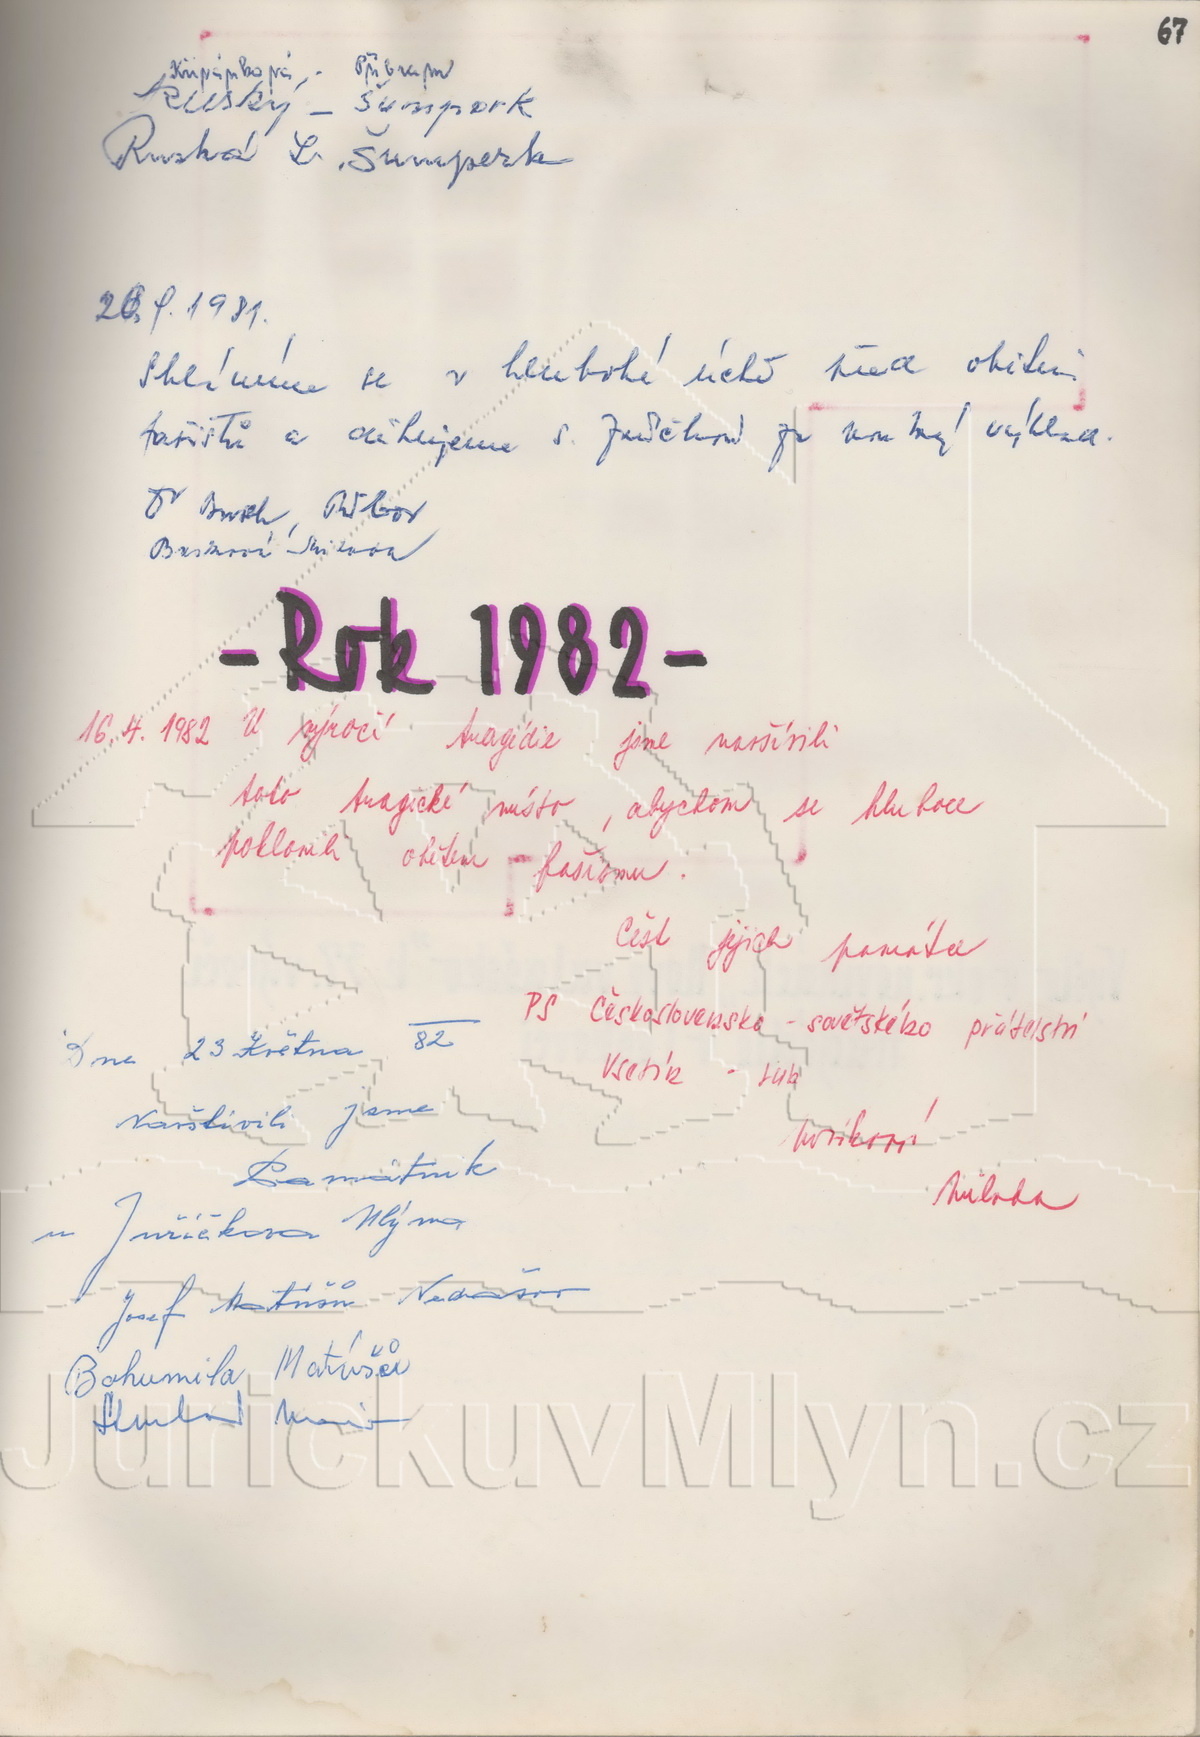 67
Příbram
Ruský - Šumperk
Ruská L. Šumperk
1981.
Skláníme se v hluboké úctě nad oběťmi
fašistů a děkujeme s. za výklad.
- Rok 1982 -
16. 4. 1982 U výročí tragédie jsme navštívili
toto tragické místo, abychom se hluboce
poklonili obětem fašismu.
Čest jejich památce
PS Československo - sovětského přátelství
Vsetín -
Miloda
Dne 23 Května 82
Navštívili jsme
Památník
u Juříčkova Mlýna
Josef Matůšů Nedašov
Bohumila Matúšů
JurickuvMlyn.cz